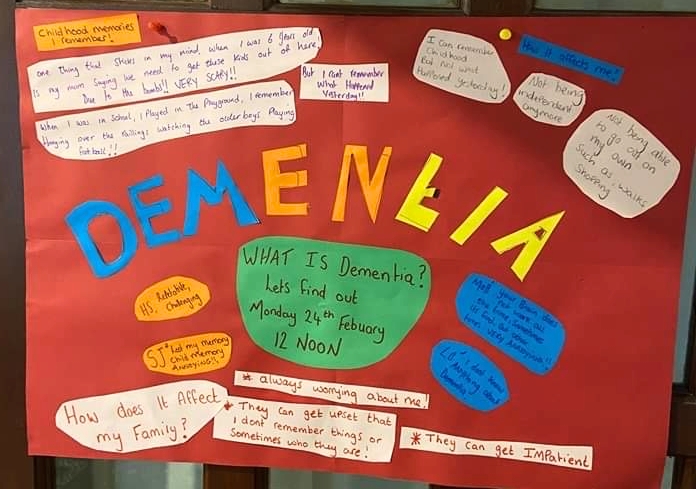 Childhood memories
I remember!
one thing that sticks in my mind, when I was 6 years old
Is my mum saying we need to get these kids out of here,
Due to the bombs!! VERY SCARY!!
When I was in school, I Played in The Playground, I remember
Hanging over the railings watching the older boys Playing
football!!
But I cant remember
What Happened
Yesterday!!
I can remember
Childhood
But not what
Happened yesterday!
How it affects me!
Not being
independent
anymore
Not being able
to go out on
my own
Such as, walks
Shopping
DEMENtIA
WHAT IS Dementia?
Lets find out
Monday 24th Febuary
12 NOON
HS,
Challenging
SJ"
my memory
Child memory
Annoying!!
your Brain does
not work as
VERY Annoying!!
I dont know
Anything about
Dementia
How does It Affect
my Family?
* always worrying about me!
* They can get upset that
I dont remember things or
Sometimes who they are!
* They can get IMPatient